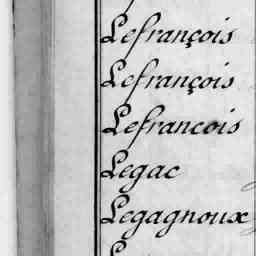 Lefrançois
Lefrançois
Lefrancois
Legac
Legagnoux